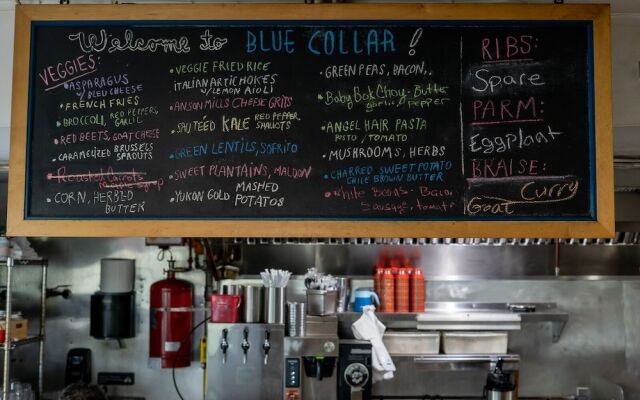 Welcome to BLUE COLLAR!
VEGGIES:
•ASPARAGUS
w/BLEU CHEESE
•FRENCH FRIES
•BROCCOLI, RED PEPPERS,
GARLIC
•RED BEETS, GOAT CHEESE
•CARAMELIZED BRUSSELS
SPROUTS
•Roasted Carrots
maple syrup
•CORN, HERBED
BUTTER
•VEGGIE FRIED RICE
ITALIAN ARTICHOKES
w/LEMON AIOLI
•ANSON MILLS CHEESE GRITS
•SAUTEED KALE RED PEPPER
SHALLOTS
•GREEN LENTILS, SOFRITO
•SWEET PLANTAINS, MALDON
•YUKON GOLD MASHED
POTATOES
•GREEN PEAS, BACON,
•Baby Bok Choy - Butter
garlic, pepper
•ANGEL HAIR PASTA
PESTO / TOMATO
•MUSHROOMS, HERBS
•CHARRED SWEET POTATO
CHILE BROWN BUTTER
•White Beans - Bacon
Sausage, tomato
RIBS:
Spare
PARM:
Eggplant
BRAISE:
Curry
Goat